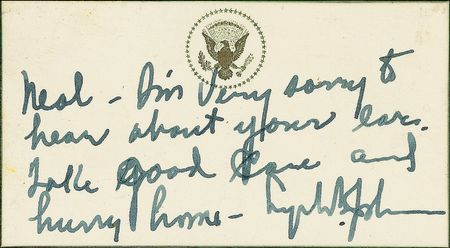 Neal - I'm very sorry to
hear about your ear.
Take good care and
hurry home - Lyndon B Johnson